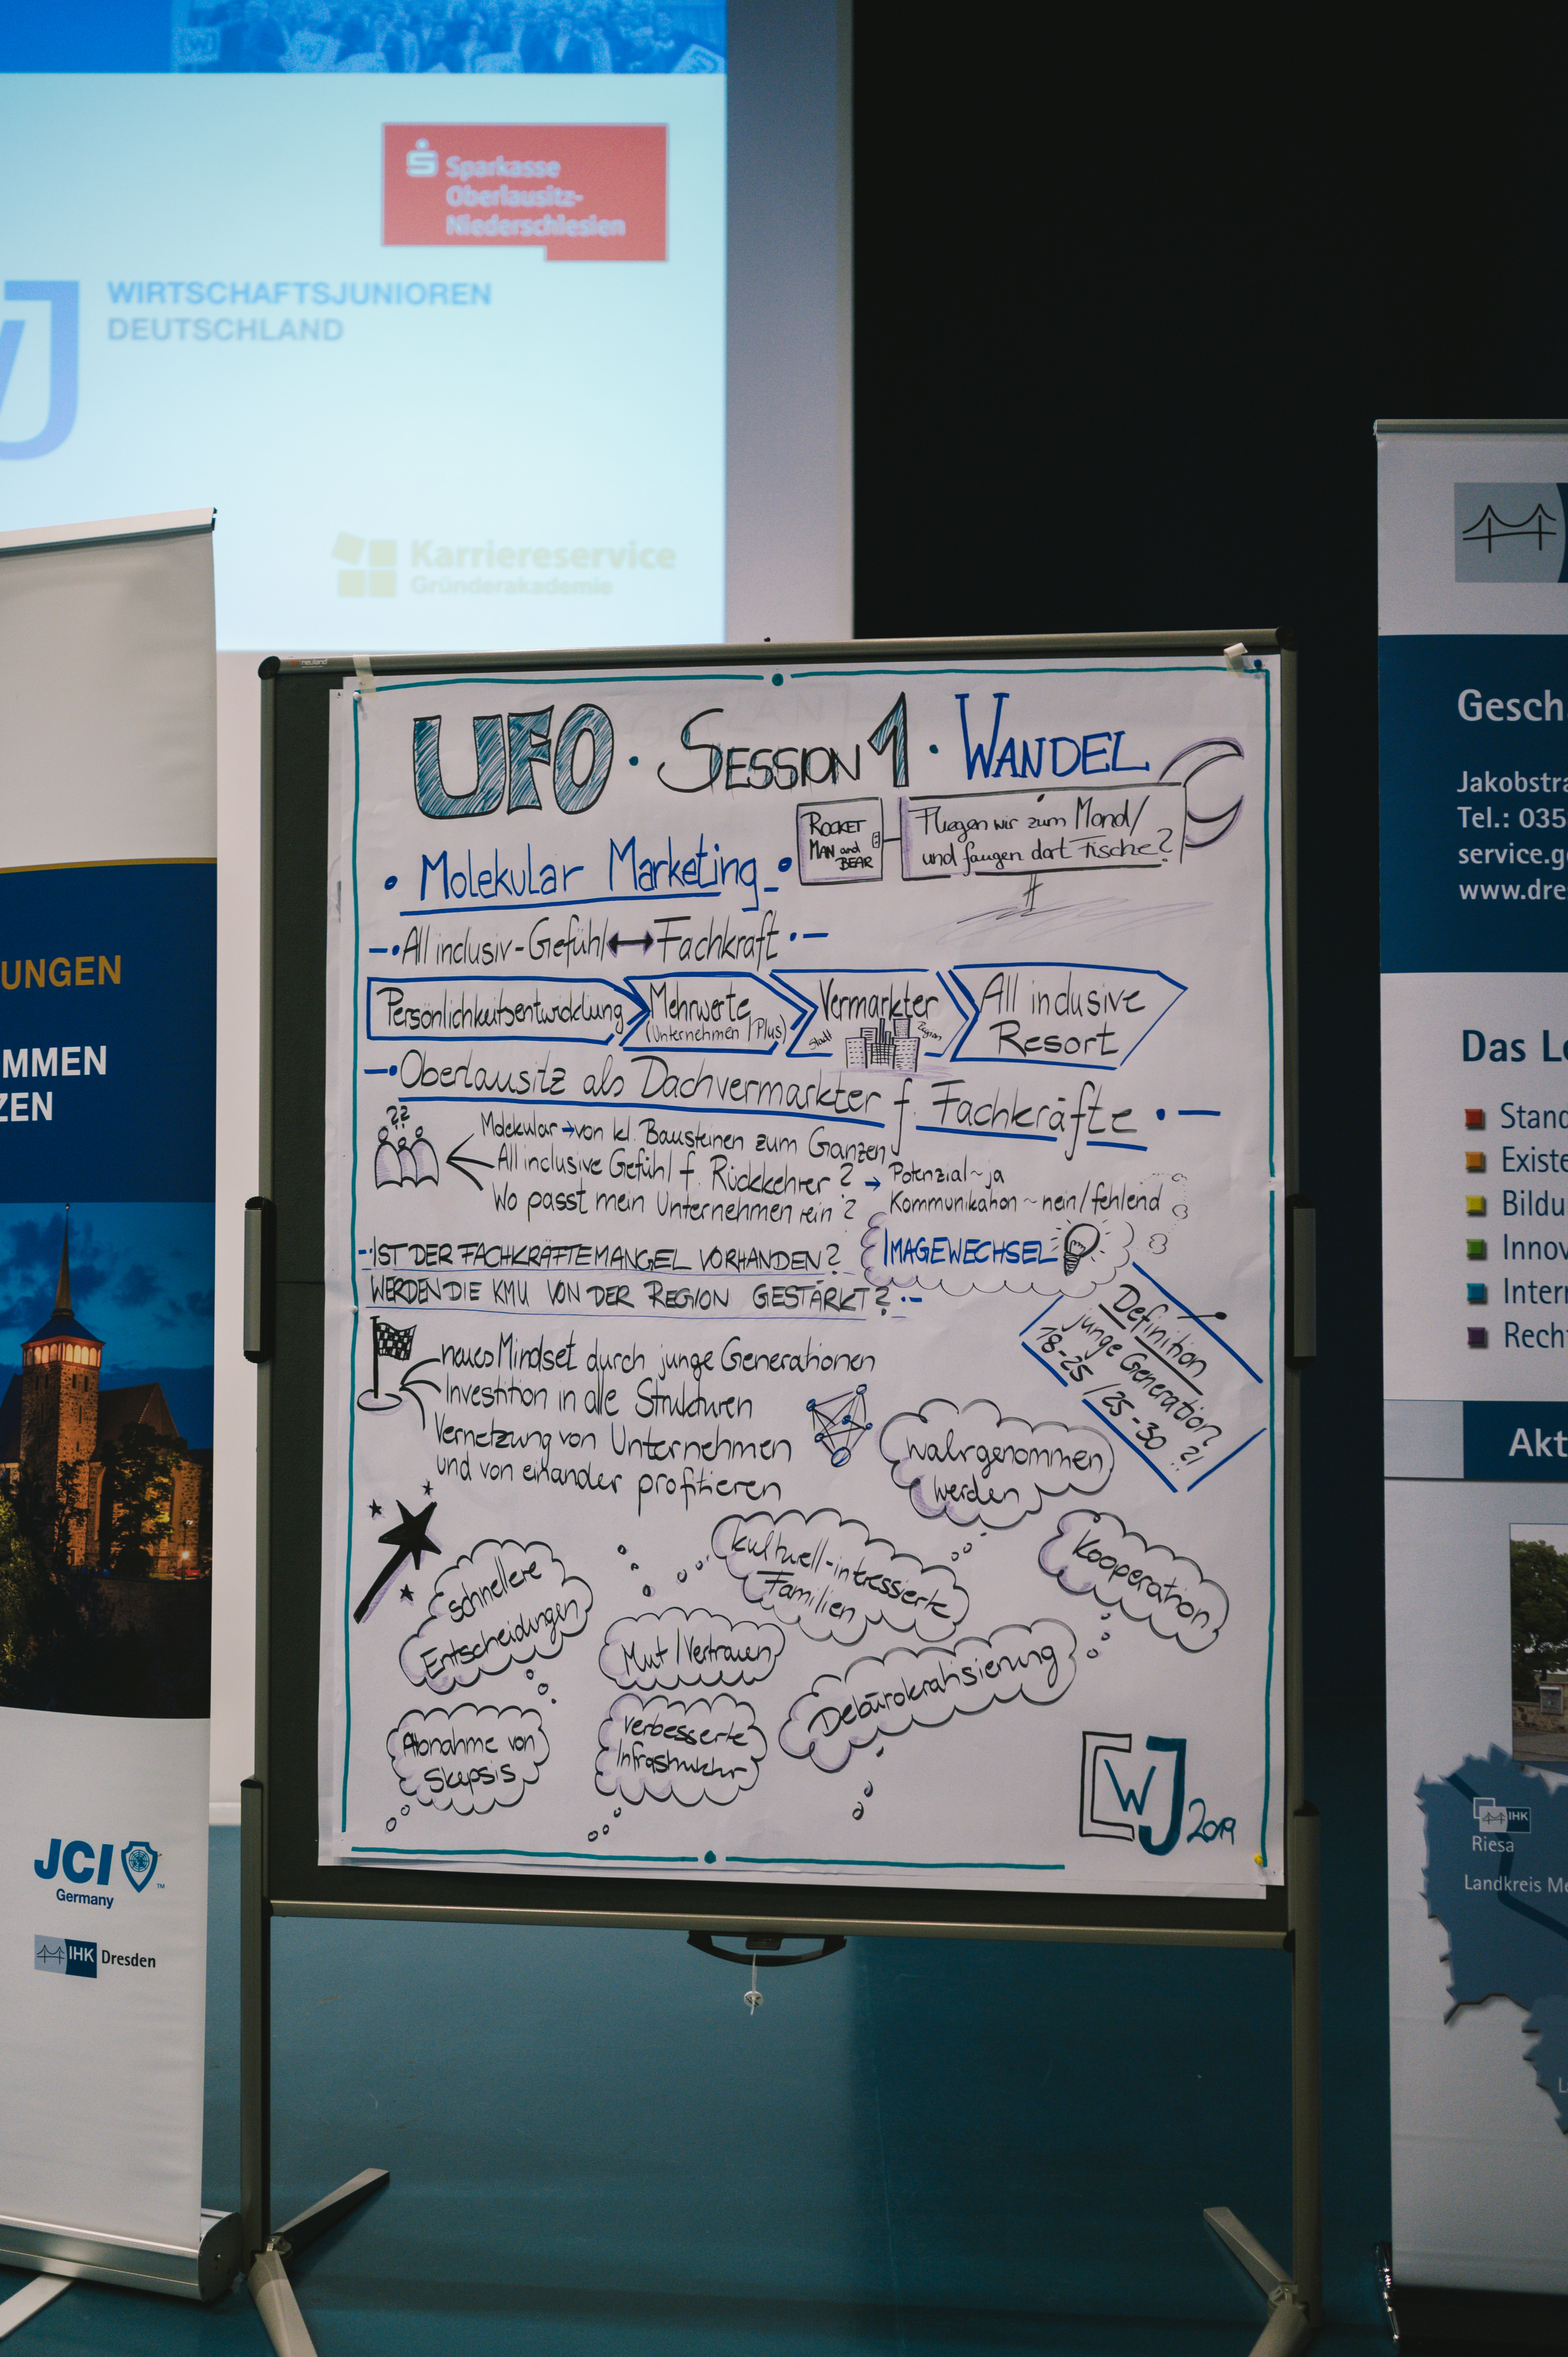 Sparkasse
Oberlausitz-
Niederschlesien
WIRTSCHAFTSJUNIOREN
DEUTSCHLAND
Karriereservice
Gründerakademie
neuland
UFO · SESSION 1 · WANDEL
ROCKET
MAN and
BEAR
Fliegen wir zum Mond/
und fangen dort Fische?
• Molekular Marketing
All inclusiv-Gefühl ↔ Fachkraft
Persönlichkeitsentwicklung
Mehrwerte
(Unternehmen/Plus)
Vermarkter
Stadt
Region
All inclusive
Resort
Oberlausitz als Dachvermarkter f. Fachkräfte
??
Molekular → von kl. Bausteinen zum Ganzen
All inclusive Gefühl f. Rückkehrer?
Wo passt mein Unternehmen rein?
→ Potenzial ~ ja
Kommunikation ~ nein/fehlend
IMAGEWECHSEL
IST DER FACHKRÄFTEMANGEL VORHANDEN?
WERDEN DIE KMU VON DER REGION GESTÄRKT?
Definition
junge Generation
18-25 / 25-30 ?!
neues Mindset durch junge Generationen
Investition in alle Strukturen
Vernetzung von Unternehmen
und von einander profitieren
wahrgenommen
werden
kulturell-intressierte
Familien
Kooperation
schnellere
Entscheidungen
Mut/Vertrauen
Debürokratisierung
Abnahme von
Skepsis
verbesserte
Infrastruktur
WJ 2019
UNGEN
MMEN
ZEN
JCI
Germany
IHK Dresden
Gesch
Jakobstra
Tel.: 035
service.g
www.dre
Das Le
Stand
Existe
Bildu
Innov
Intern
Rech
Akt
IHK
Riesa
Landkreis Me